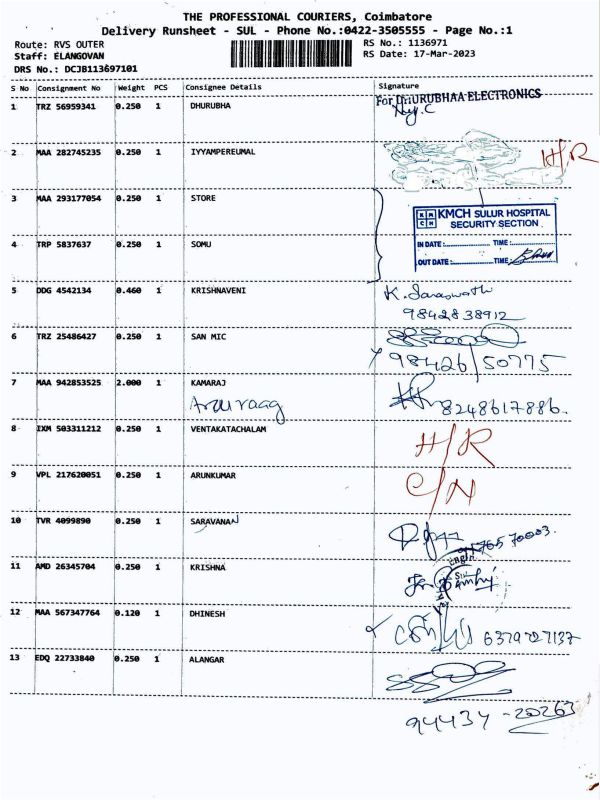 THE PROFESSIONAL COURIERS, Coimbatore
Delivery Runsheet - SUL - Phone No.:0422-3505555 - Page No.:1
Route: RVS OUTER
Staff: ELANGOVAN
DRS No.: DCJB113697101
RS No.: 1136971
RS Date: 17-Mar-2023
S No Consignment No Weight PCS Consignee Details Signature
For DHURUBHAA ELECTRONICS
1 TRZ 56959341 0.250 1 DHURUBHA
2 MAA 282745235 0.250 1 IYYAMPEREUMAL H/R
3 MAA 293177054 0.250 1 STORE
KMCH SULUR HOSPITAL
SECURITY SECTION
IN DATE: TIME:
OUT DATE: TIME:
4 TRP 5837637 0.250 1 SOMU
5 DDG 4542134 0.460 1 KRISHNAVENI K. Saraswathi
9842838912
6 TRZ 25486427 0.250 1 SAN MIC
98426/50775
7 MAA 942853525 2.000 1 KAMARAJ
Anuraag 8248617886.
8 IXM 503311212 0.250 1 VENTAKATACHALAM H/R
9 VPL 217620051 1 0.250 ARUNKUMAR C/N
10 TVR 4099890 0.250 1 SARAVANAN
11 AMD 26345704 0.250 1 KRISHNA
12 MAA 567347764 0.120 1 DHINESH 6379727137
13 EDQ 22733840 0.250 1 ALANGAR
94434-20263